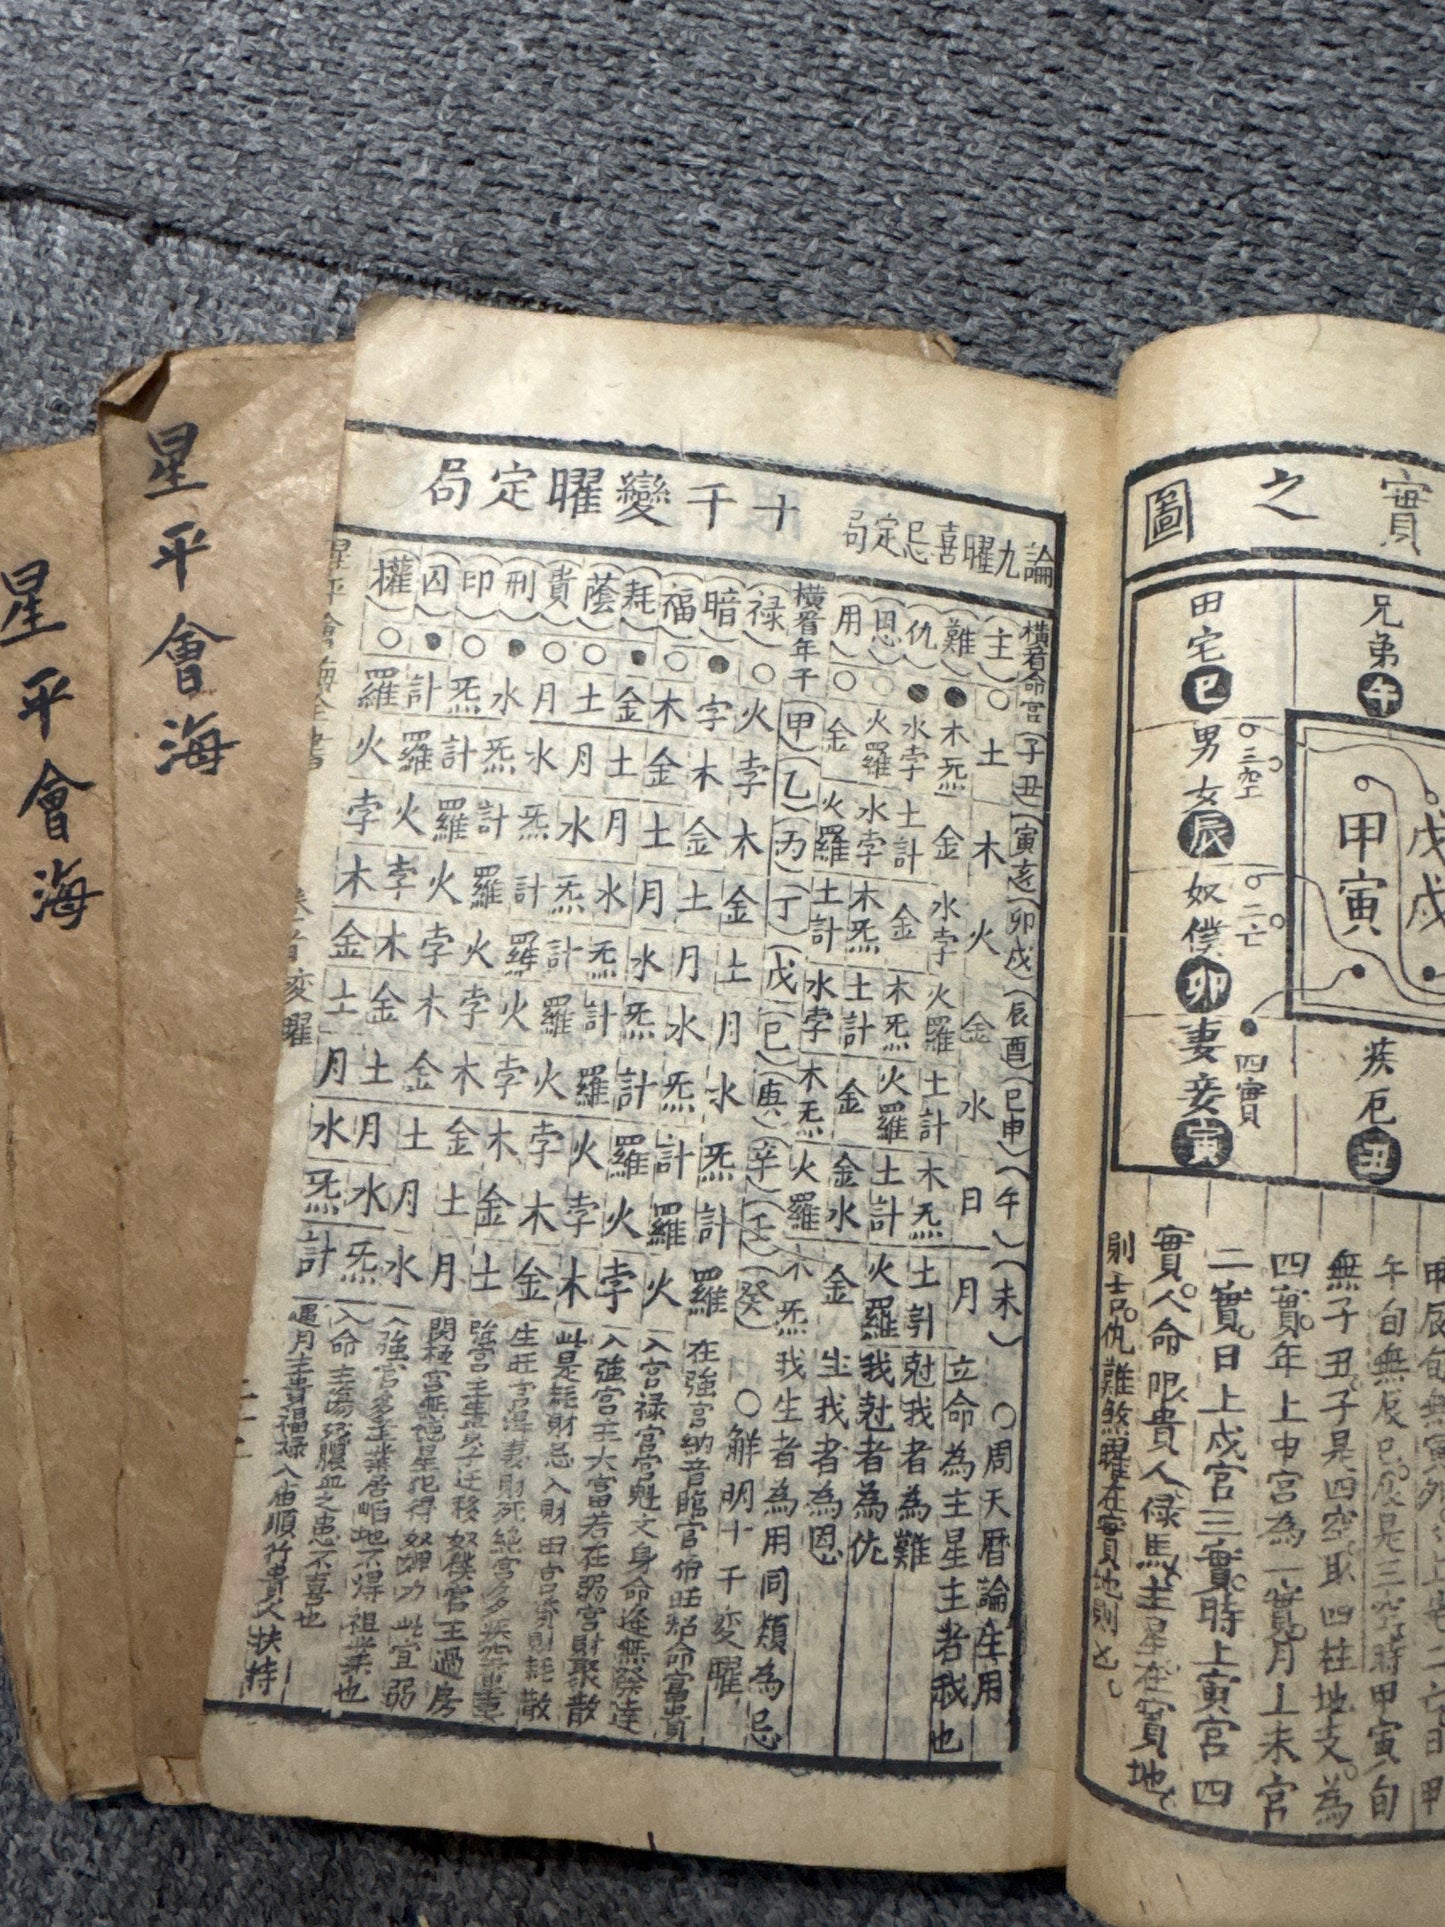 實之圖
兄弟午
疾厄丑
戊戌
甲寅
田宅巳
男女辰
奴僕卯
妻妾寅
三空
二亡
四實
午旬無辰巳。辰是三空時甲寅旬
無子丑。子是四空。取四柱地支。為
四實。年上申宮為一實。月上未宮
二實。日上戌宮三實。時上寅宮四
實。人命限貴人祿馬主星在實地
則吉。仇難煞曜在實地則凶。
論九曜喜忌定局
十千變曜定局
橫看命宮 子丑 寅亥 卯戌 辰酉 巳申 午 未 ○周天曆論生用
主 ○ 土 木 火 金 水 日 月 立命為主星主者我也
難 ● 木炁 金 水孛 火羅 土計 木炁 土計 尅我者為難
仇 ● 水孛 土計 金 木炁 火羅 土計 火羅 我尅者為仇
恩 ○ 火羅 水孛 木炁 土計 金 金水 金 生我者為恩
用 ○ 金 火羅 土計 水孛 木炁 火羅 木炁 我生者為用同類為忌
橫看年干 甲 乙 丙 丁 戊 己 庚 辛 壬 癸 ○解明十千變曜
祿 ○ 火 孛 木 金 土 月 水 炁 計 羅 在強宮納音臨官帝旺 命富貴
暗 ● 孛 木 金 土 月 水 炁 計 羅 火 入宮祿宮魁文身命逢無發達
福 ○ 木 金 土 月 水 炁 計 羅 火 孛 入強宮主大富若在弱宮財聚散
耗 ● 金 土 月 水 炁 計 羅 火 孛 木 此是耗財忌入財田宮 則耗散
蔭 ○ 土 月 水 炁 計 羅 火 孛 木 金 生旺宮得妻財死絕宮多疾
貴 ○ 月 水 炁 計 羅 火 孛 木 金 土 強宮主 遷移奴僕宮主過房
刑 ● 水 炁 計 羅 火 孛 木 金 土 月 得奴婢力此宜弱
印 ○ 炁 計 羅 火 孛 木 金 土 月 水 入強宮多主業居 地不得祖業也
囚 ● 計 羅 火 孛 木 金 土 月 水 炁 入命主傷 腹血之患不喜也
權 ○ 羅 火 孛 木 金 土 月 水 炁 計 遇月主貴福祿入廟順行貴人扶持
星平會海全書
變曜
星平會海
星平會海